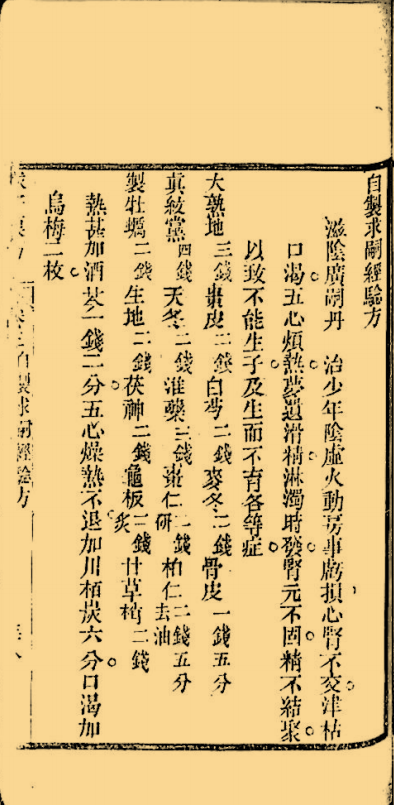 自製求嗣經驗方
滋陰廣嗣丹 治少年陰虛火動房事虧損心腎不交津枯
口渴五心煩熱夢遺滑精淋濁時發腎元不固精不結聚
以致不能生子及生而不育各等症
大熟地三錢 棗皮二錢 白芍二錢 麥冬二錢 骨皮一錢五分
真紋黨四錢 天冬二錢 淮藥三錢 棗仁二錢研 柏仁二錢五分去油
製牡蠣二錢 生地二錢 茯神二錢 龜板二錢炙 甘草梢二錢
熱甚加酒芩一錢二分五心燥熱不退加川栢炭六分口渴加
烏梅二枚
自製求嗣經驗方